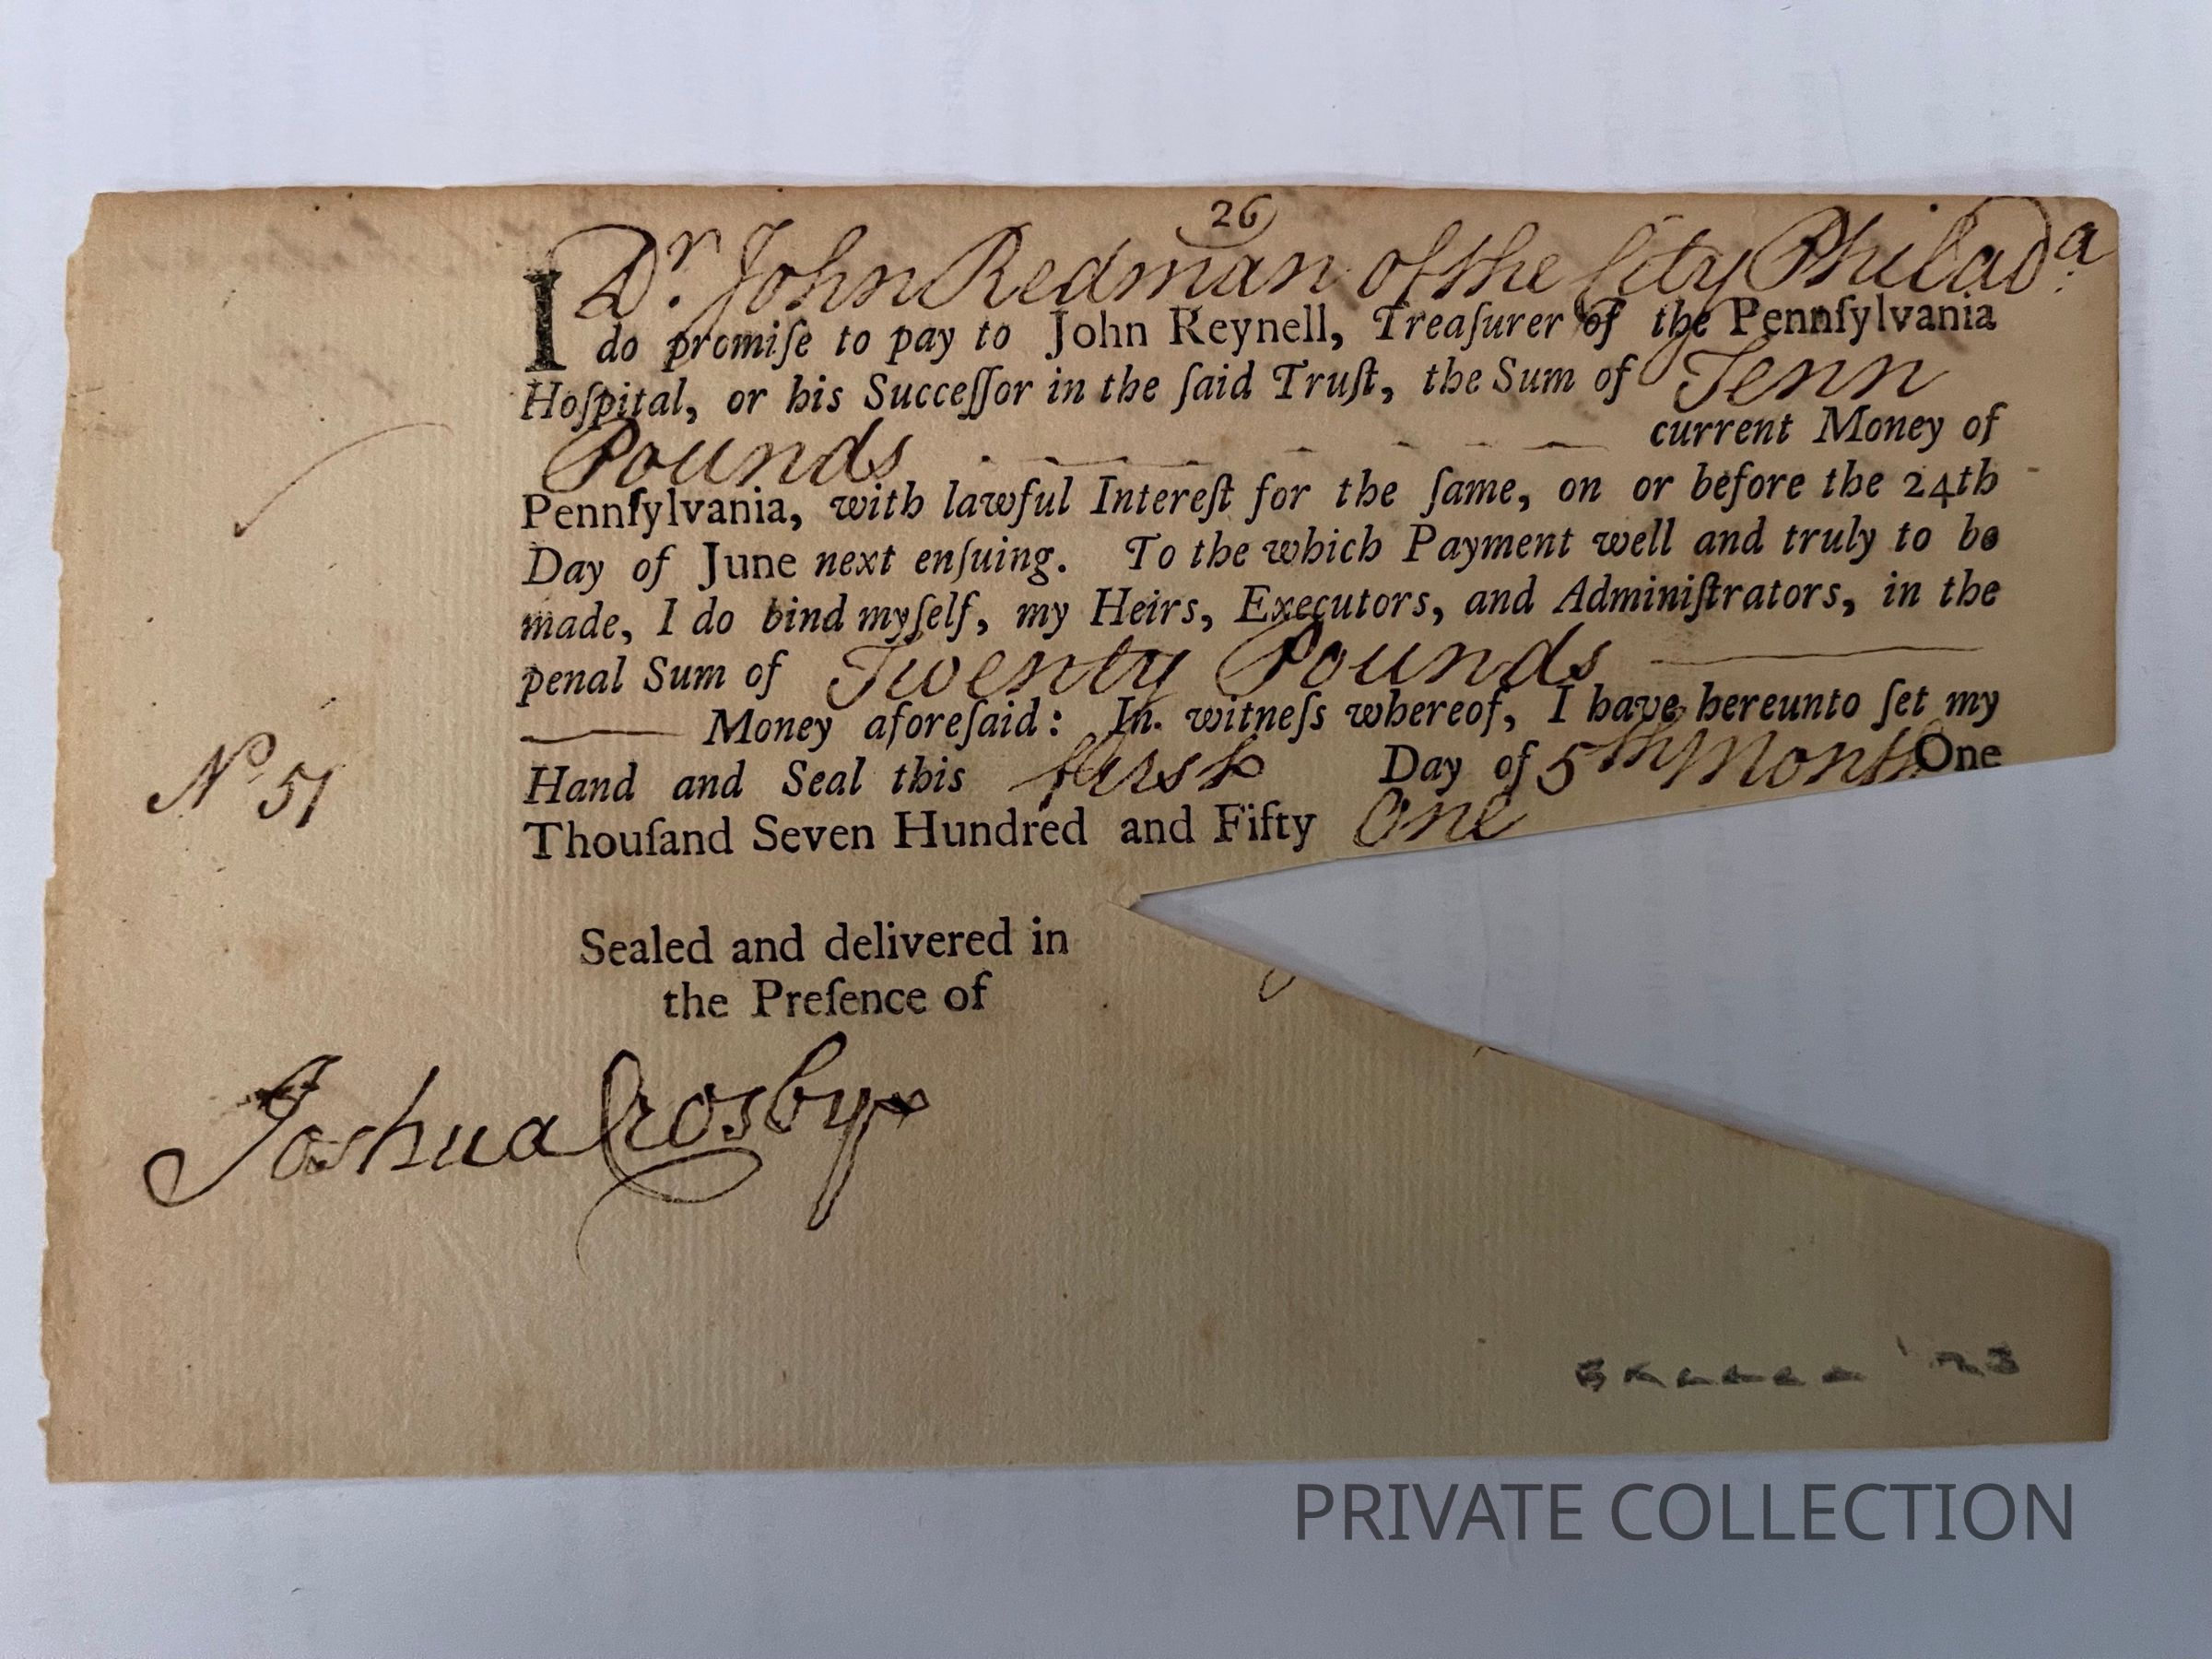 26
I Dr. John Redman of the City Philada.
do promiſe to pay to John Reynell, Treaſurer of the Pennſylvania
Hoſpital, or his Succeſſor in the ſaid Truſt, the Sum of Tenn
Pounds current Money of
Pennſylvania, with lawful Intereſt for the ſame, on or before the 24th
Day of June next enſuing. To the which Payment well and truly to be
made, I do bind myſelf, my Heirs, Executors, and Adminiſtrators, in the
penal Sum of Twenty Pounds
Money aforeſaid: In witneſs whereof, I have hereunto ſet my
Hand and Seal this first Day of 5th Month One
Thouſand Seven Hundred and Fifty One
No 51
Sealed and delivered in
the Preſence of
Joshua Crosby
PRIVATE COLLECTION